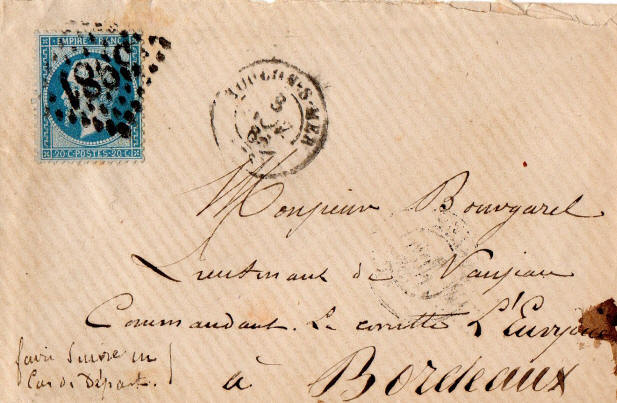 EMPIRE FRANC
20 C POSTES 20 C
TOULON-S-MER
Monsieur Bourgarel
Lieutenant de Vaisseau
Commandant. Le cornette L'Eurydice
faire suivre en
Cas de Départ.
à Bordeaux